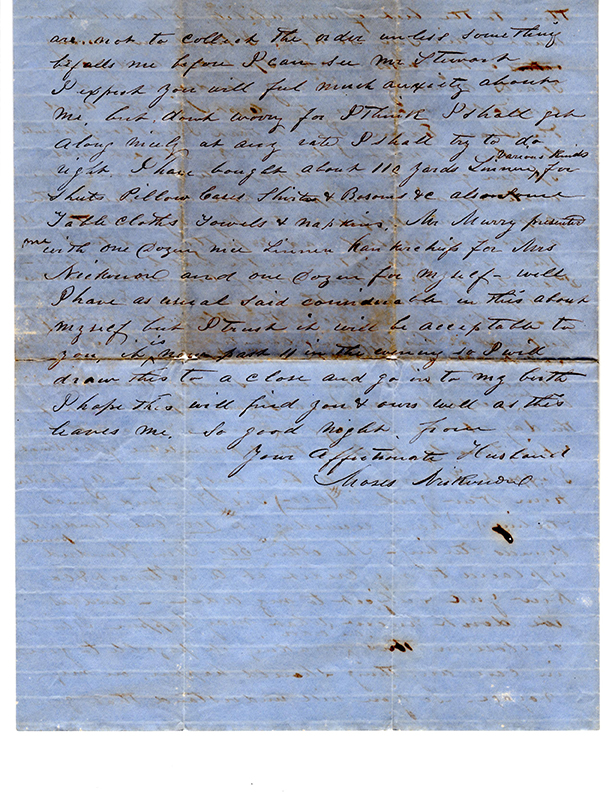 are not to collect the order unless something
befalls me before I can see Mr Stewart
I expect you will feel much anxiety about
me. but dont worry for I think I shall get
along nicely at any rate I shall try to do
right. I have bought about 112 yards Linnen, Various Kinds for
Sheets Pillow Cases Shirts & Bosoms &c also some
Table Cloths Towels & Napkins. Mr Murry presented
me with one Dozen nice Linnen Hankerchiefs for Mrs
and one Dozen for myself - well
I have as usual said considerable in this about
myself but I trust it will be acceptable to
you it is now past 11 in the evening so I will
draw this to a close and go in to my birth
I hope this will find you & ours well as this
leaves me. So good night from
Your Affectionate Husband
Moses